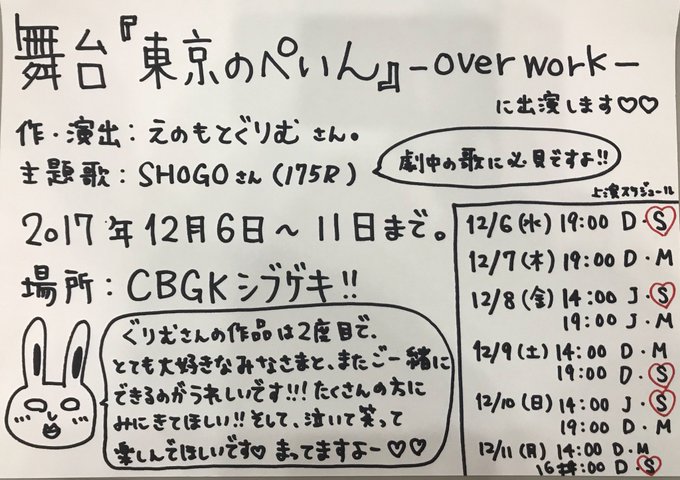 舞台『東京のぺいん』-over work-
に出演します♡♡
作・演出:えのもとぐりむ さん。
主題歌:SHOGOさん(175R)
劇中の歌に必見ですよ!!
2017年12月6日～11日まで。
場所:CBGKシブゲキ!!
ぐりむさんの作品は2度目で、
とても大好きなみなさまと、またご一緒に
できるのがうれしいです!!! たくさんの方に
みにきてほしい!! そして、泣いて笑って
楽しんでほしいです♡ まってますよー♡♡
上演スケジュール
12/6(水) 19:00 D・S
12/7(木) 19:00 D・M
12/8(金) 14:00 J・S
19:00 J・M
12/9(土) 14:00 D・M
19:00 D・S
12/10(日) 14:00 J・S
19:00 D・M
12/11(月) 14:00 D・M
16:00 D・S